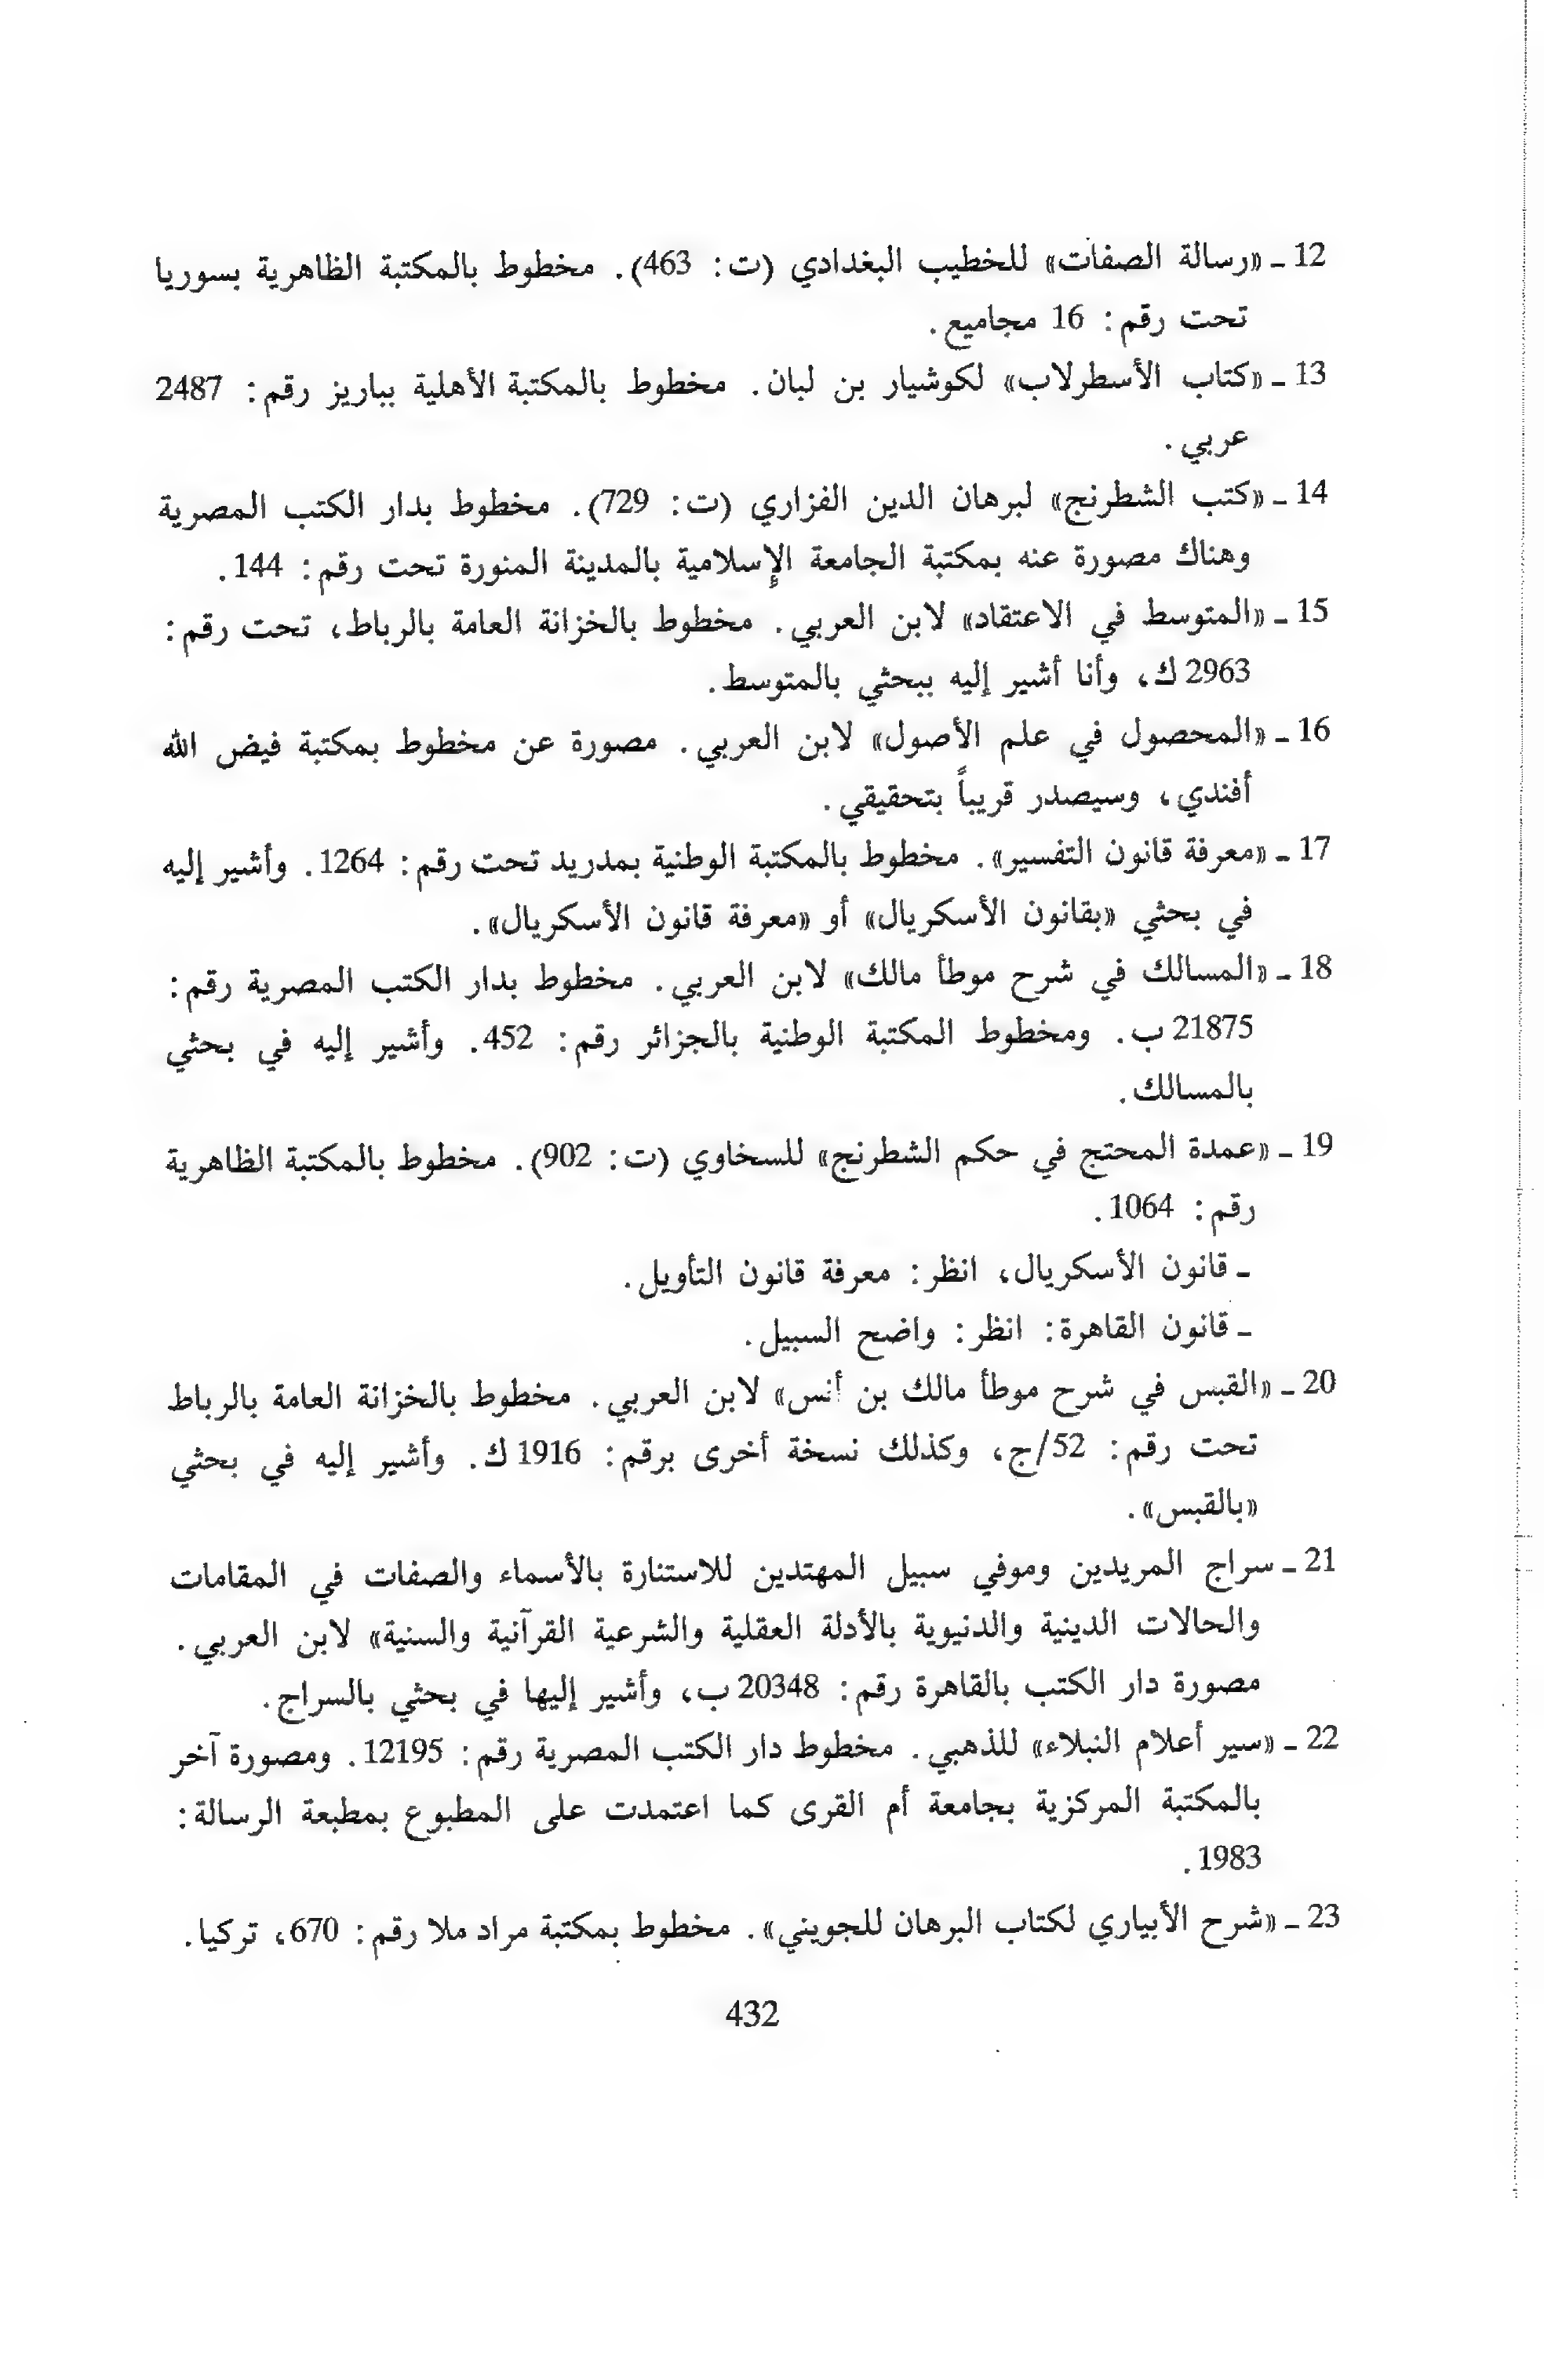 12 ـ «رسالة الصفات» للخطيب البغدادي (ت: 463). مخطوط بالمكتبة الظاهرية بسوريا
تحت رقم: 16 مجاميع.
13 ـ «كتاب الأسطرلاب» لكوشيار بن لبان. مخطوط بالمكتبة الأهلية بباريز رقم: 2487
عربي.
14 ـ «كتب الشطرنج» لبرهان الدين الفزاري (ت: 729). مخطوط بدار الكتب المصرية
وهناك مصورة عنه بمكتبة الجامعة الإسلامية بالمدينة المنورة تحت رقم: 144.
15 ـ «المتوسط في الاعتقاد» لابن العربي. مخطوط بالخزانة العامة بالرباط، تحت رقم:
2963 ك، وأنا أشير إليه ببحثي بالمتوسط.
16 ـ «المحصول في علم الأصول» لابن العربي. مصورة عن مخطوط بمكتبة فيض الله
أفندي، وسيصدر قريباً بتحقيقي.
17 ـ «معرفة قانون التفسير». مخطوط بالمكتبة الوطنية بمدريد تحت رقم: 1264. وأشير إليه
في بحثي «بقانون الأسكريال» أو «معرفة قانون الأسكريال».
18 ـ «المسالك في شرح موطأ مالك» لابن العربي. مخطوط بدار الكتب المصرية رقم:
21875 ب. ومخطوط المكتبة الوطنية بالجزائر رقم: 452. وأشير إليه في بحثي
بالمسالك.
19 ـ «عمدة المحتج في حكم الشطرنج» للسخاوي (ت: 902). مخطوط بالمكتبة الظاهرية
رقم: 1064.
ـ قانون الأسكريال، انظر: معرفة قانون التأويل.
ـ قانون القاهرة: انظر: واضح السبيل.
20 ـ «القبس في شرح موطأ مالك بن أنس» لابن العربي. مخطوط بالخزانة العامة بالرباط
تحت رقم: 52/ج، وكذلك نسخة أخرى برقم: 1916 ك. وأشير إليه في بحثي
«بالقبس».
21 ـ سراج المريدين وموفي سبيل المهتدين للاستنارة بالأسماء والصفات في المقامات
والحالات الدينية والدنيوية بالأدلة العقلية والشرعية القرآنية والسنية» لابن العربي.
مصورة دار الكتب بالقاهرة رقم: 20348 ب، وأشير إليها في بحثي بالسراج.
22 ـ «سير أعلام النبلاء» للذهبي. مخطوط دار الكتب المصرية رقم: 12195. ومصورة آخر
بالمكتبة المركزية بجامعة أم القرى كما اعتمدت على المطبوع بمطبعة الرسالة:
1983.
23 ـ «شرح الأبياري لكتاب البرهان للجويني». مخطوط بمكتبة مراد ملا رقم: 670، تركيا.
432